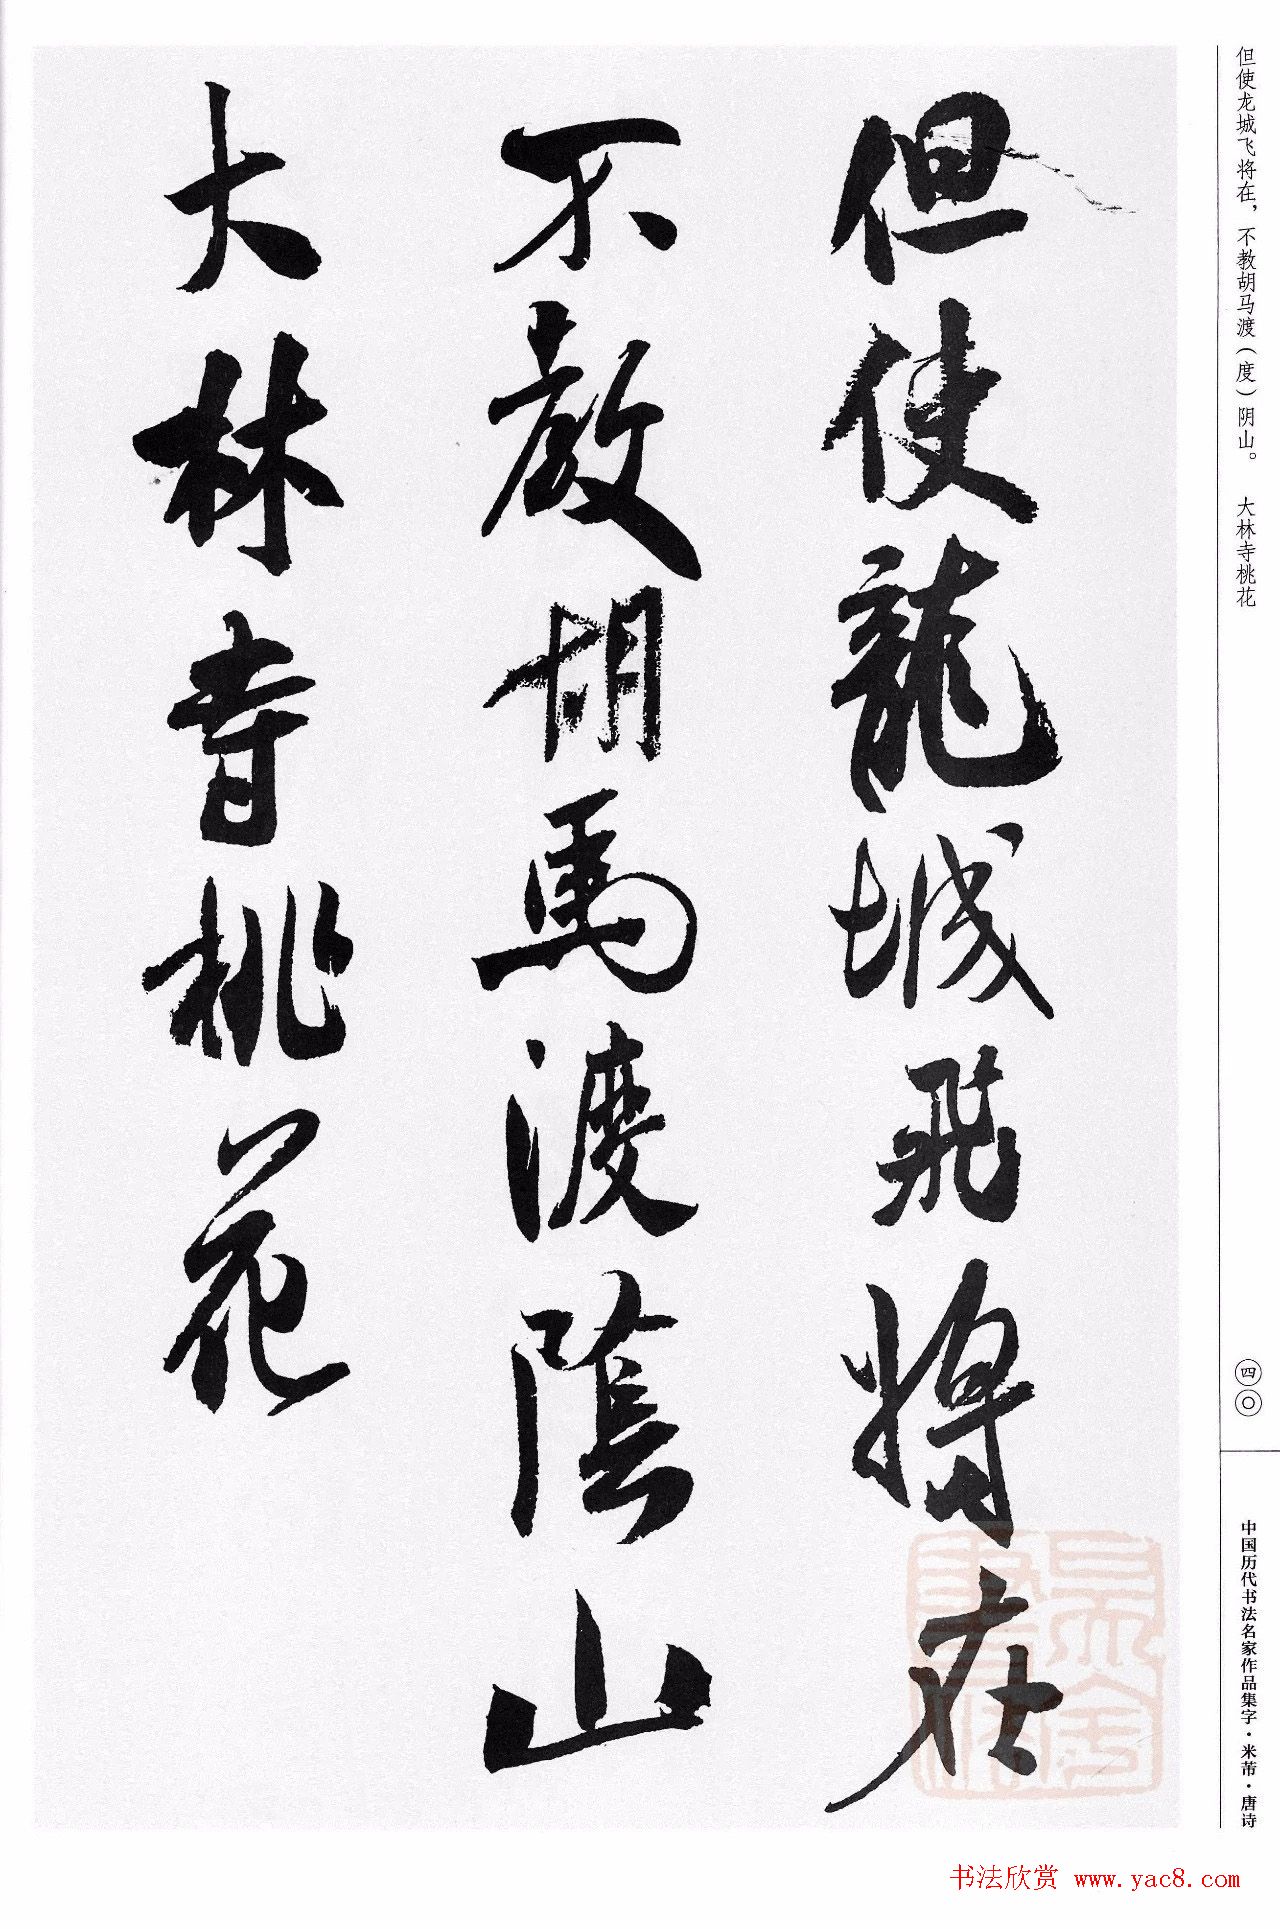 但使龙城飞将在，不教胡马渡（度）阴山。　大林寺桃花
四〇
中国历代书法名家作品集字·米芾·唐诗
但使龍城飛將在
不教胡馬渡陰山
大林寺桃花
书法欣赏 www.yac8.com